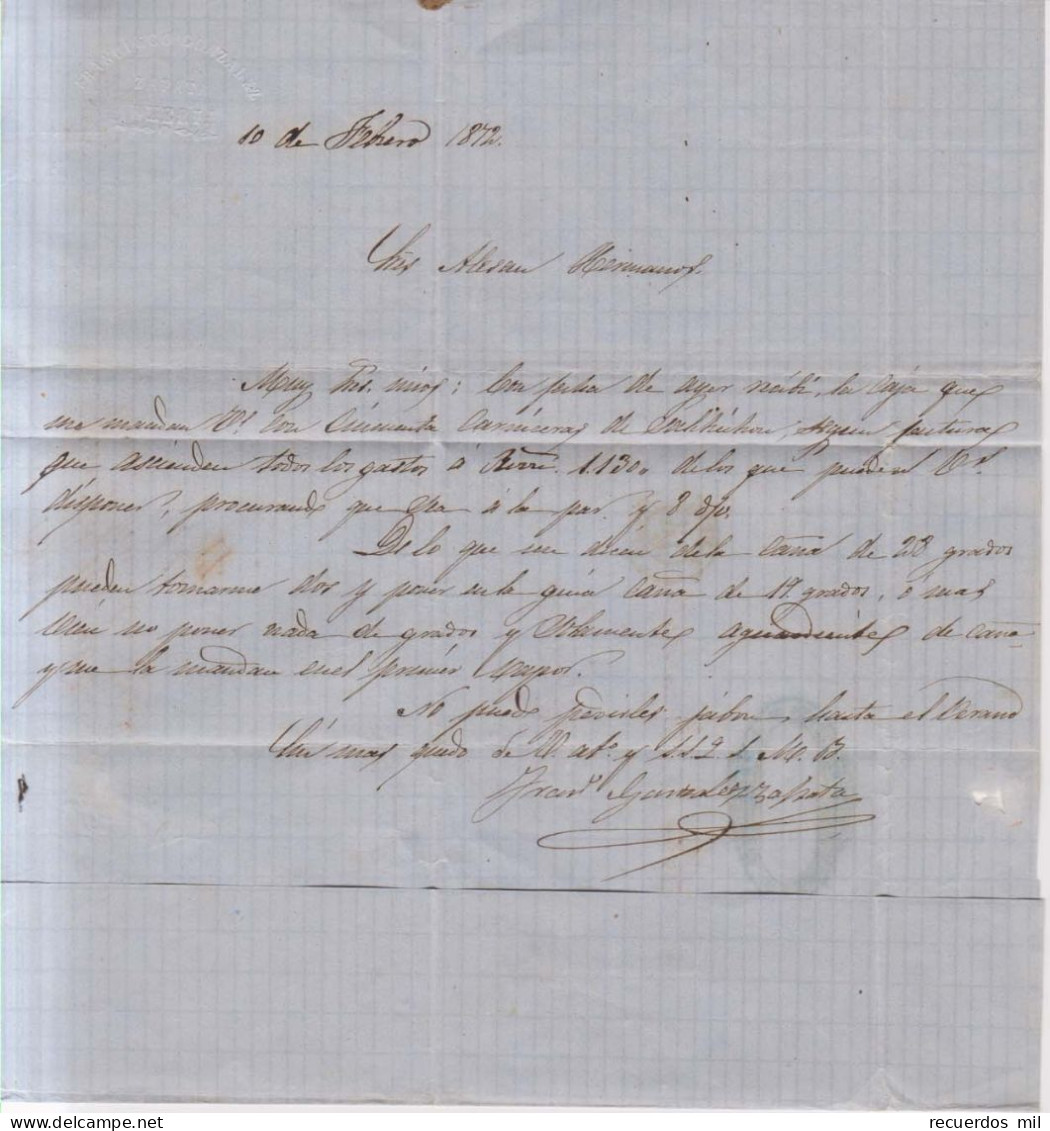 FRANCISCO GONZALEZ
10 de Febrero 1872.
Sres Alesan Hermanos.
Muy Sres. mios: Con fecha de ayer recibi, la caja que
me mandan Vs. con Cincuenta de Salchichon, segun factura
que ascienden todos los gastos á Rvon. 1.130, de los que pueden Vs
disponer, procurando que sea á la par y 8 d/v.
De lo que me dicen de la caña de 28 grados
pueden tomarme dos y poner en la guia caña de 19 grados, ó mas
bien no poner nada de grados y solamente aguardiente de caña
y me la mandan en el primer vapor.
No puedo pedirles jabon, hasta el Verano
Sin mas quedo de V. afmo. y S. S. Q. S. M. B.
Franco. Gonzalez Zapata
recuerdos mil